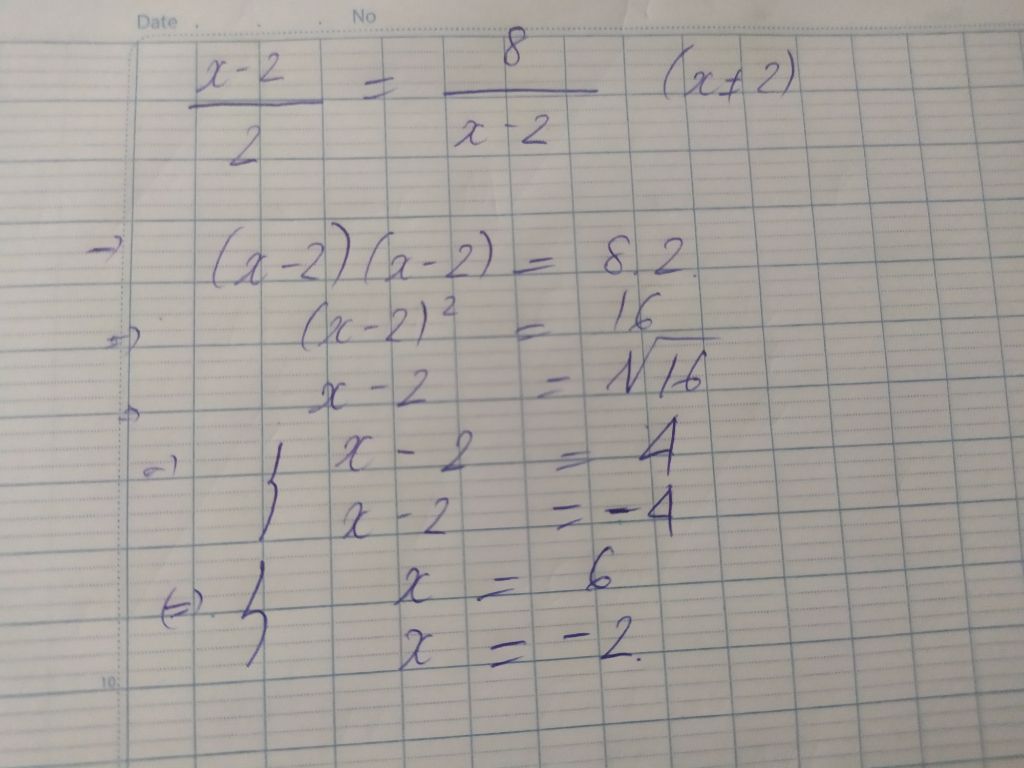 Date . . No
x-2 / 2 = 8 / x-2 (x≠2)
→ (x-2)(x-2) = 8.2.
=> (x-2)² = 16
x-2 = √16
→
=> { x-2 = 4
x-2 = -4
<=> { x = 6
x = -2.
10